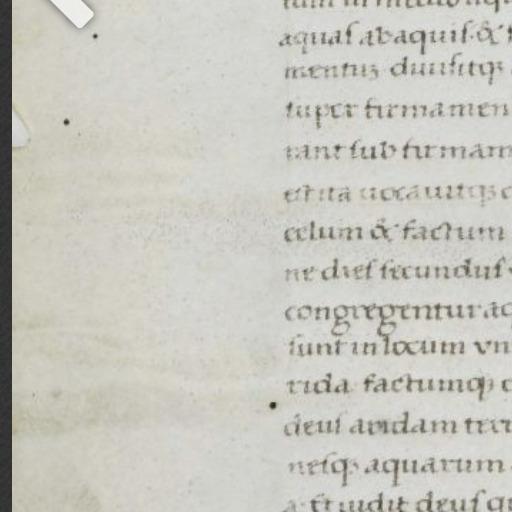 aquas ab aquis. & 
mentũ. diuisitq;
super firmamen
rant sub firmam
est ita uocauitq;
celum & factum
ne dies secundus
congregentur aq
sunt in locum un
rida factumq;
deus aridam terr
nesq; aquarum
a. Et uidit deus q